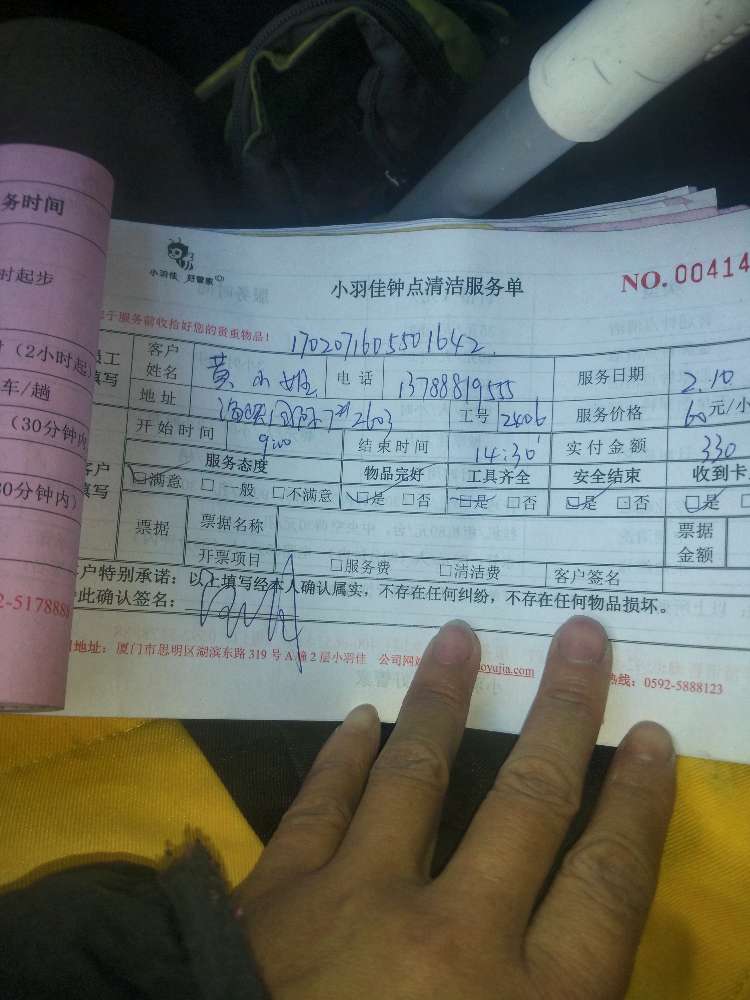 务时间
时起步
时（2小时起
车/趟
（30分钟内
30分钟内）
2-5178888
小羽佳 好管家
小羽佳钟点清洁服务单
NO. 00414
于服务前收拾好您的贵重物品！
1702071605501642
员工
填写
客户
姓名
黄小姐
电话
13788819555
服务日期
2.10
地址
2603
工号
2406
服务价格
60元/小
开始时间
9:00
结束时间
14:30
实付金额
330
客户
填写
服务态度
物品完好
工具齐全
安全结束
收到卡
☑满意 □一般 □不满意
☑是 □否
☑是 □否
☑是 □否
☑是 □
票据
票据名称
票据
金额
开票项目
□服务费 □清洁费
客户签名
客户特别承诺：以上填写经本人确认属实，不存在任何纠纷，不存在任何物品损坏。
此确认签名：
地址：厦门市思明区湖滨东路319号A幢2层小羽佳 公司网
oyujia.com
热线：0592-5888123